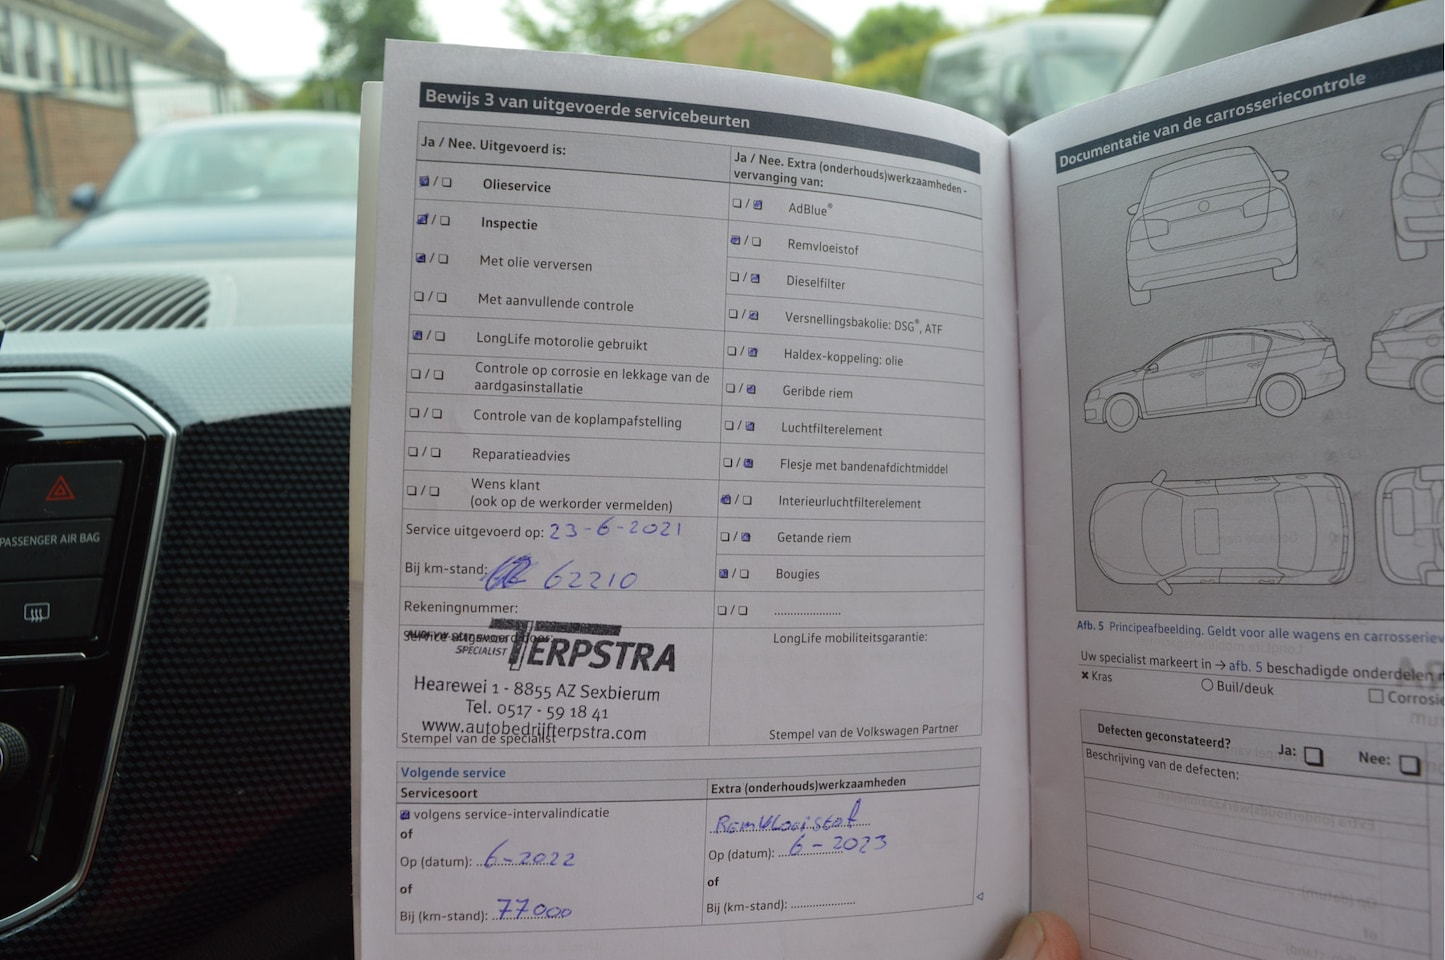 PASSENGER AIR BAG
Bewijs 3 van uitgevoerde servicebeurten
Ja / Nee. Uitgevoerd is:
Olieservice
Inspectie
Met olie verversen
Met aanvullende controle
LongLife motorolie gebruikt
Controle op corrosie en lekkage van de
aardgasinstallatie
Controle van de koplampafstelling
Reparatieadvies
Wens klant
(ook op de werkorder vermelden)
Service uitgevoerd op: 23-6-2021
Bij km-stand: 62210
Rekeningnummer:
Service uitgevoerd door:
SPECIALIST TERPSTRA
Hearewei 1 - 8855 AZ Sexbierum
Tel. 0517 - 59 18 41
www.autobedrijfterpstra.com
Stempel van de specialist
Ja / Nee. Extra (onderhouds)werkzaamheden -
vervanging van:
AdBlue®
Remvloeistof
Dieselfilter
Versnellingsbakolie: DSG®, ATF
Haldex-koppeling: olie
Geribde riem
Luchtfilterelement
Flesje met bandenafdichtmiddel
Interieurluchtfilterelement
Getande riem
Bougies
LongLife mobiliteitsgarantie:
Stempel van de Volkswagen Partner
Volgende service
Servicesoort
volgens service-intervalindicatie
of
Op (datum): 6-2022
of
Bij (km-stand): 77000
Extra (onderhouds)werkzaamheden
Remvloeistof
Op (datum): 6-2023
of
Bij (km-stand):
Documentatie van de carrosseriecontrole
Afb. 5 Principeafbeelding. Geldt voor alle wagens en
Uw specialist markeert in → afb. 5 beschadigde onderdelen
× Kras
Buil/deuk
Defecten geconstateerd? Ja: Nee:
Beschrijving van de defecten: